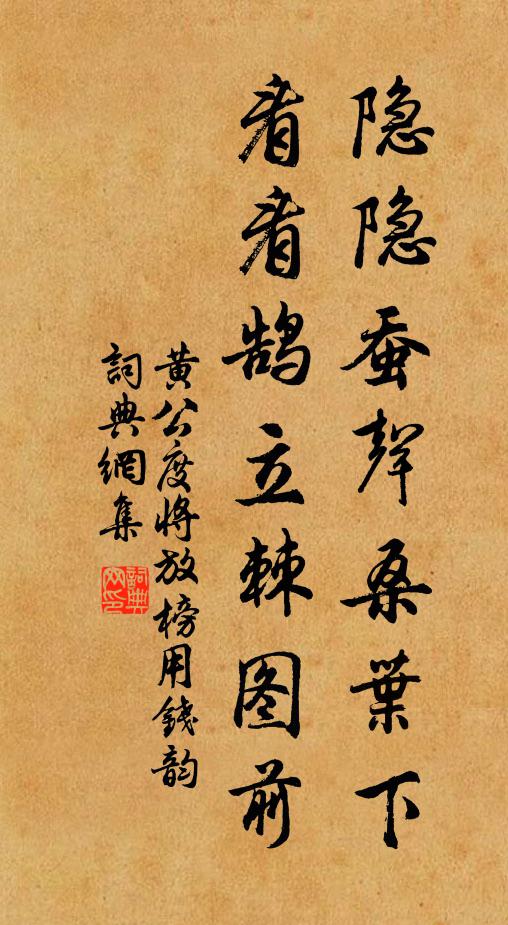 隐隐蚕声桑叶下
看看鹄立棘图前
黄公度将放榜用钱韵
词典網集
詞典網印